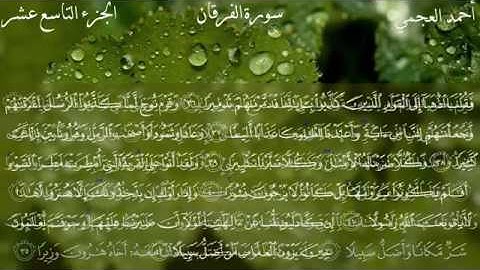 أحمد العجمي سورة الفرقان الجزء التاسع عشر
فَقُلْنَا اذْهَبَا إِلَى الْقَوْمِ الَّذِينَ كَذَّبُوا بِآيَاتِنَا فَدَمَّرْنَاهُمْ تَدْمِيرًا ﴿٣٦﴾ وَقَوْمَ نُوحٍ لَمَّا كَذَّبُوا الرُّسُلَ أَغْرَقْنَاهُمْ
وَجَعَلْنَاهُمْ لِلنَّاسِ آيَةً وَأَعْتَدْنَا لِلظَّالِمِينَ عَذَابًا أَلِيمًا ﴿٣٧﴾ وَعَادًا وَثَمُودَ وَأَصْحَابَ الرَّسِّ وَقُرُونًا بَيْنَ ذَلِكَ
كَثِيرًا ﴿٣٨﴾ وَكُلًّا ضَرَبْنَا لَهُ الْأَمْثَالَ وَكُلًّا تَبَّرْنَا تَتْبِيرًا ﴿٣٩﴾ وَلَقَدْ أَتَوْا عَلَى الْقَرْيَةِ الَّتِي أُمْطِرَتْ مَطَرَ السَّوْءِ
أَفَلَمْ يَكُونُوا يَرَوْنَهَا بَلْ كَانُوا لَا يَرْجُونَ نُشُورًا ﴿٤٠﴾ وَإِذَا رَأَوْكَ إِنْ يَتَّخِذُونَكَ إِلَّا هُزُوًا
اللَّهُ رَسُولًا ﴿٤١﴾ إِنْ كَادَ لَيُضِلُّنَا عَنْ آلِهَتِنَا لَوْلَا أَنْ صَبَرْنَا عَلَيْهَا وَسَوْفَ يَعْلَمُونَ
شَرٌّ مَكَانًا وَأَضَلُّ سَبِيلًا حِينَ يَرَوْنَ الْعَذَابَ مَنْ أَضَلُّ سَبِيلًا أَخَاهُ هَارُونَ وَزِيرًا ﴿٣٥﴾